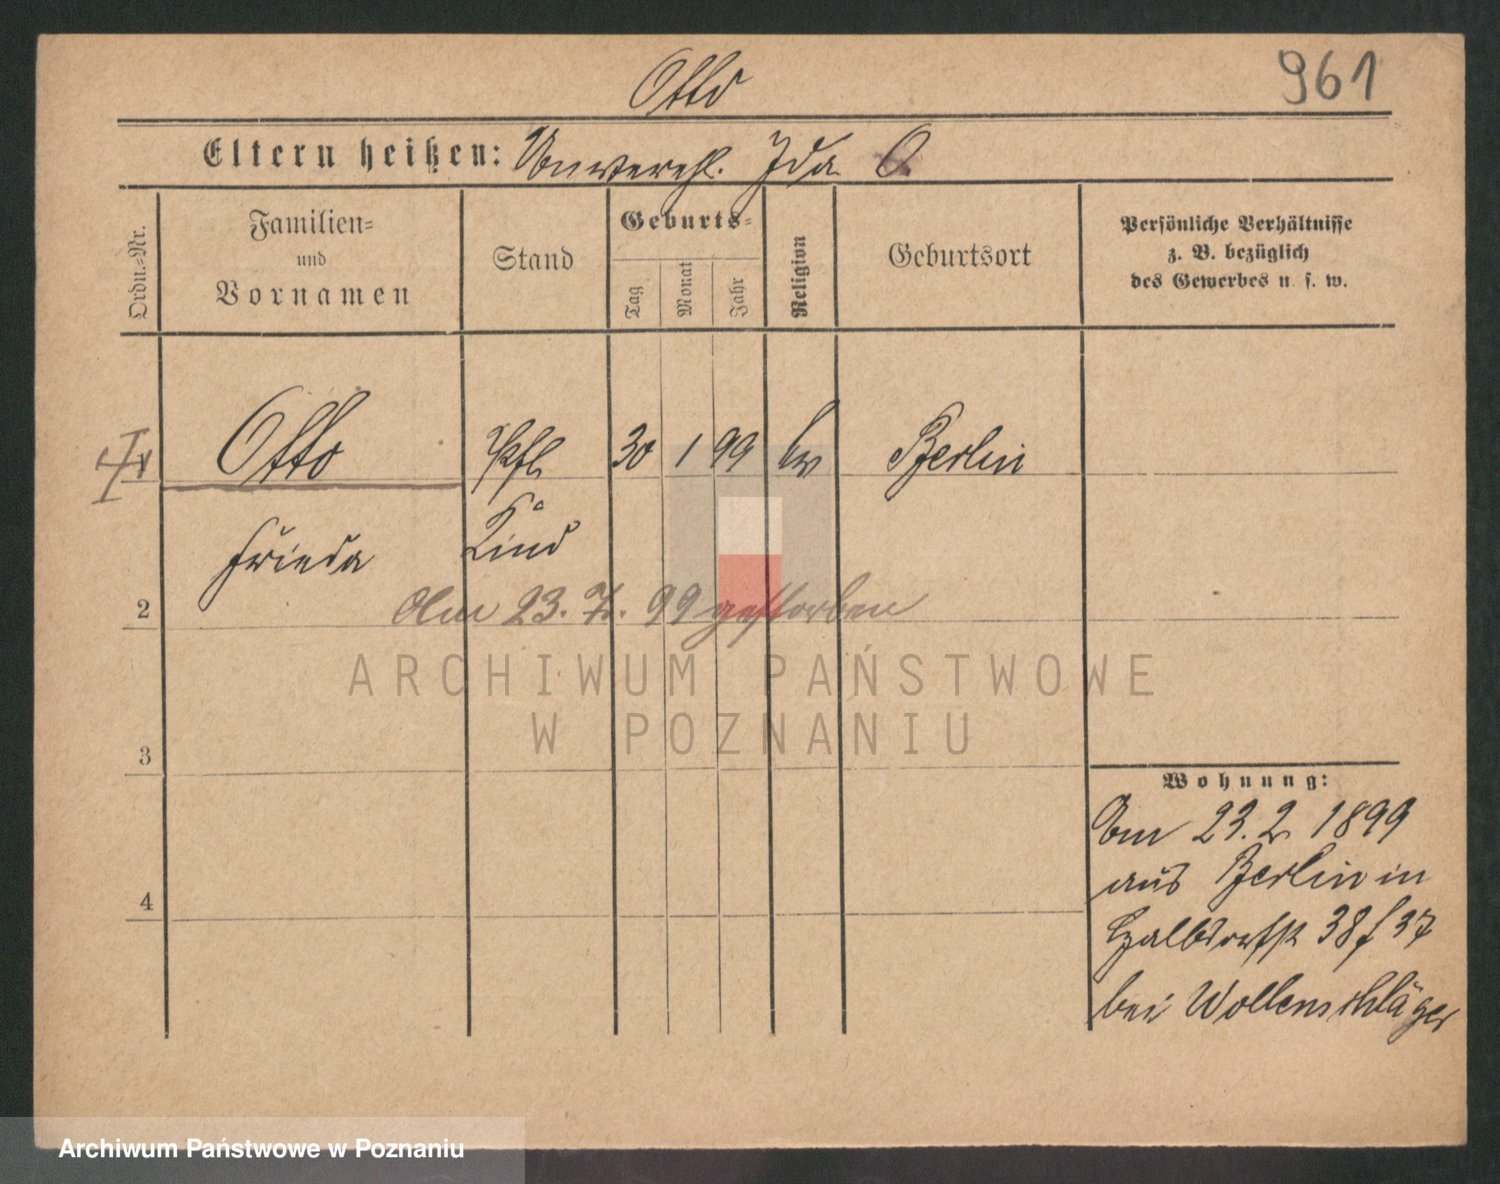 Otto
961
Eltern heißen: Unverehl. Ida O.
Ordn.-Nr.
Familien-
und
Vornamen
Stand
Geburts-
Tag
Monat
Jahr
Religion
Geburtsort
Persönliche Verhältnisse
z. B. bezüglich
des Gewerbes u. s. w.
Otto Pfl. 30 1 99 Ev Berlin
Frieda Kind
2
Am 23. 7. 99 gestorben
ARCHIWUM PAŃSTWOWE
W POZNANIU
3
Wohnung:
Am 23. 2. 1899
aus Berlin in
Halbdorfst 38 f 37
bei Wollenschläger
4
Archiwum Państwowe w Poznaniu